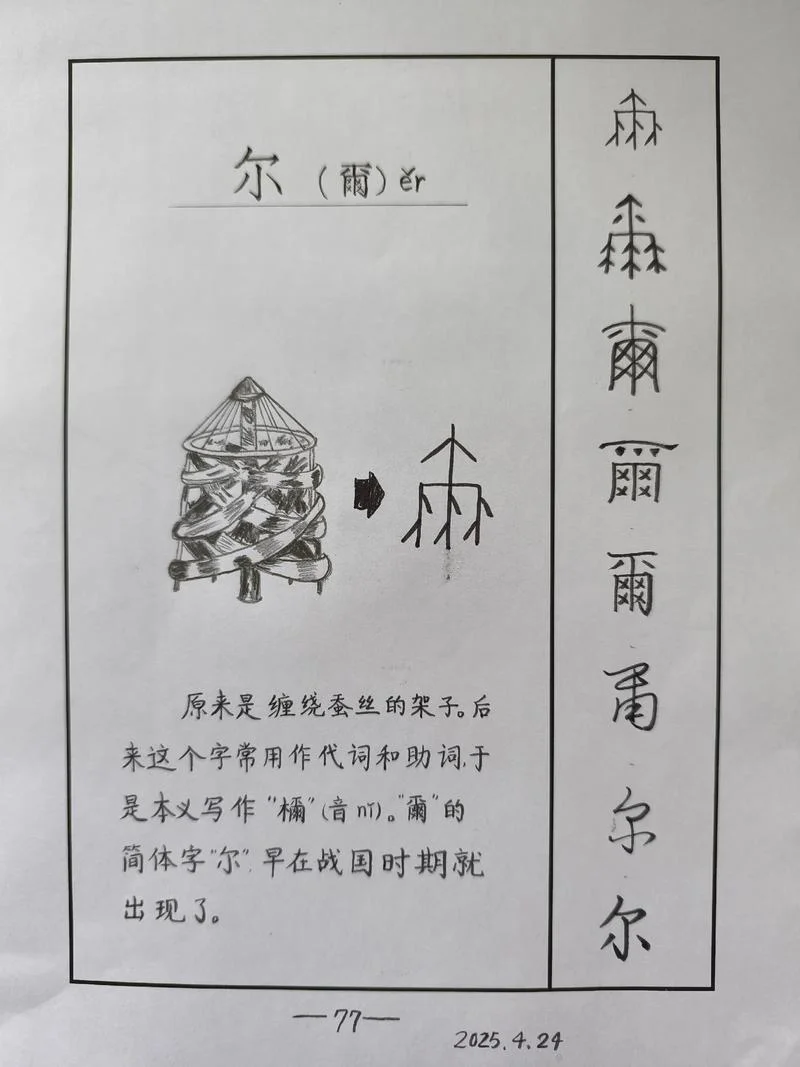 尔 (爾) ěr
原来是缠绕蚕丝的架子。后
来这个字常用作代词和助词,于
是本义写作“檷”(音nǐ)。“爾”的
简体字“尔”,早在战国时期就
出现了。
爾
爾
尔
尔
—77—
2025.4.24